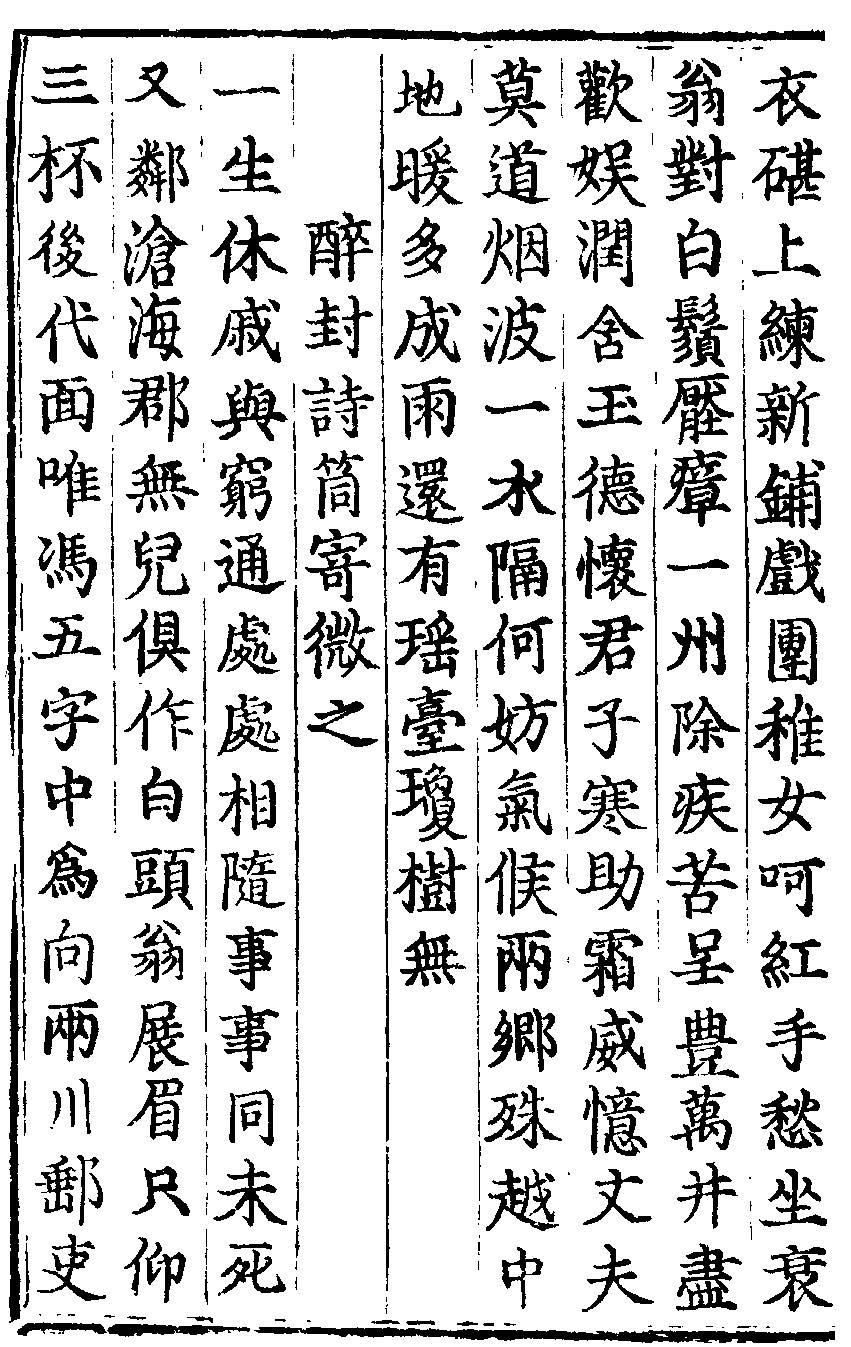 衣碪上練新鋪戲團稚女呵紅手愁坐衰
翁對白鬚壓瘴一州除疾苦呈豊萬井盡
歡娱潤含玉德懷君子寒助霜威憶丈夫
莫道烟波一水隔何妨氣候兩鄉殊越中
地暖多成雨還有瑶臺瓊樹無
醉封詩筒寄微之
一生休戚與窮通處處相隨事事同未死
又鄰滄海郡無兒俱作白頭翁展眉只仰
三杯後代面唯馮五字中爲向兩川郵吏